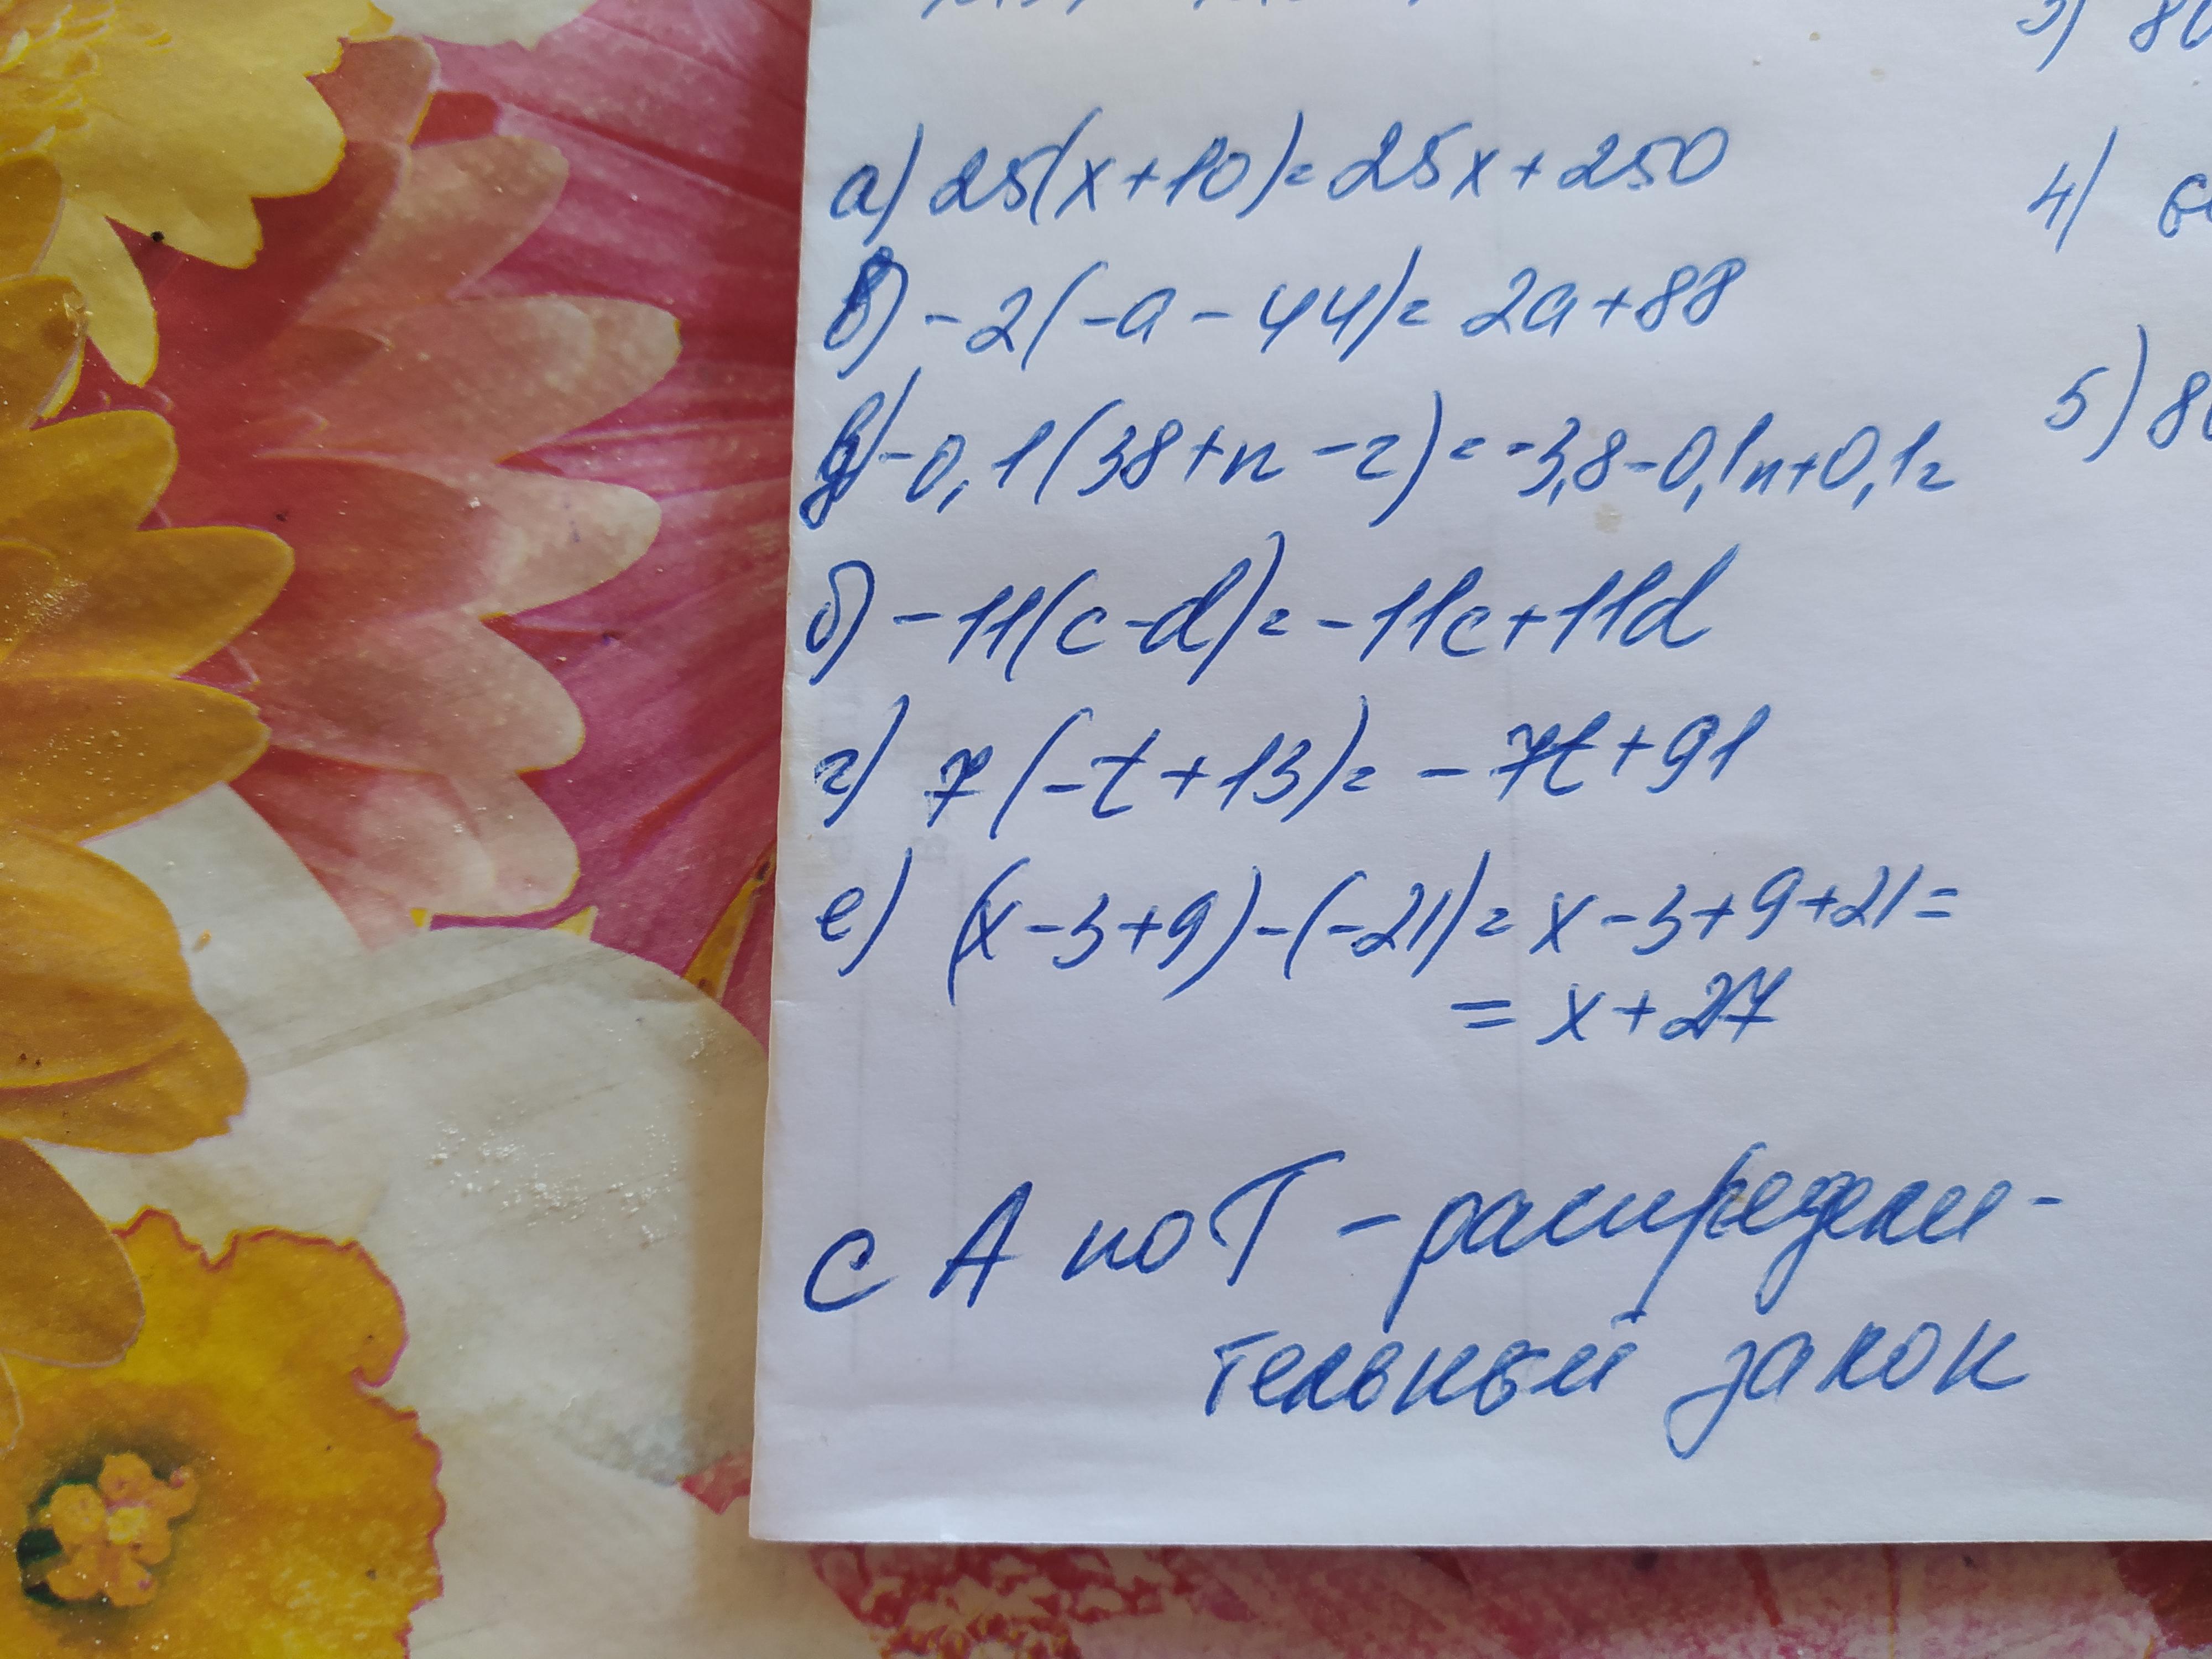 а) 25(x+10)=25x+250
в) -2(-a-44)=2a+88
д) -0,1(38+n-z)=-3,8-0,1n+0,1z
б) -11(c-d)=-11c+11d
г) 7(-t+13)=-7t+91
е) (x-3+9)-(-21)=x-3+9+21=
=x+27
с А по Т - распредели-
тельный закон
4)
5) 8